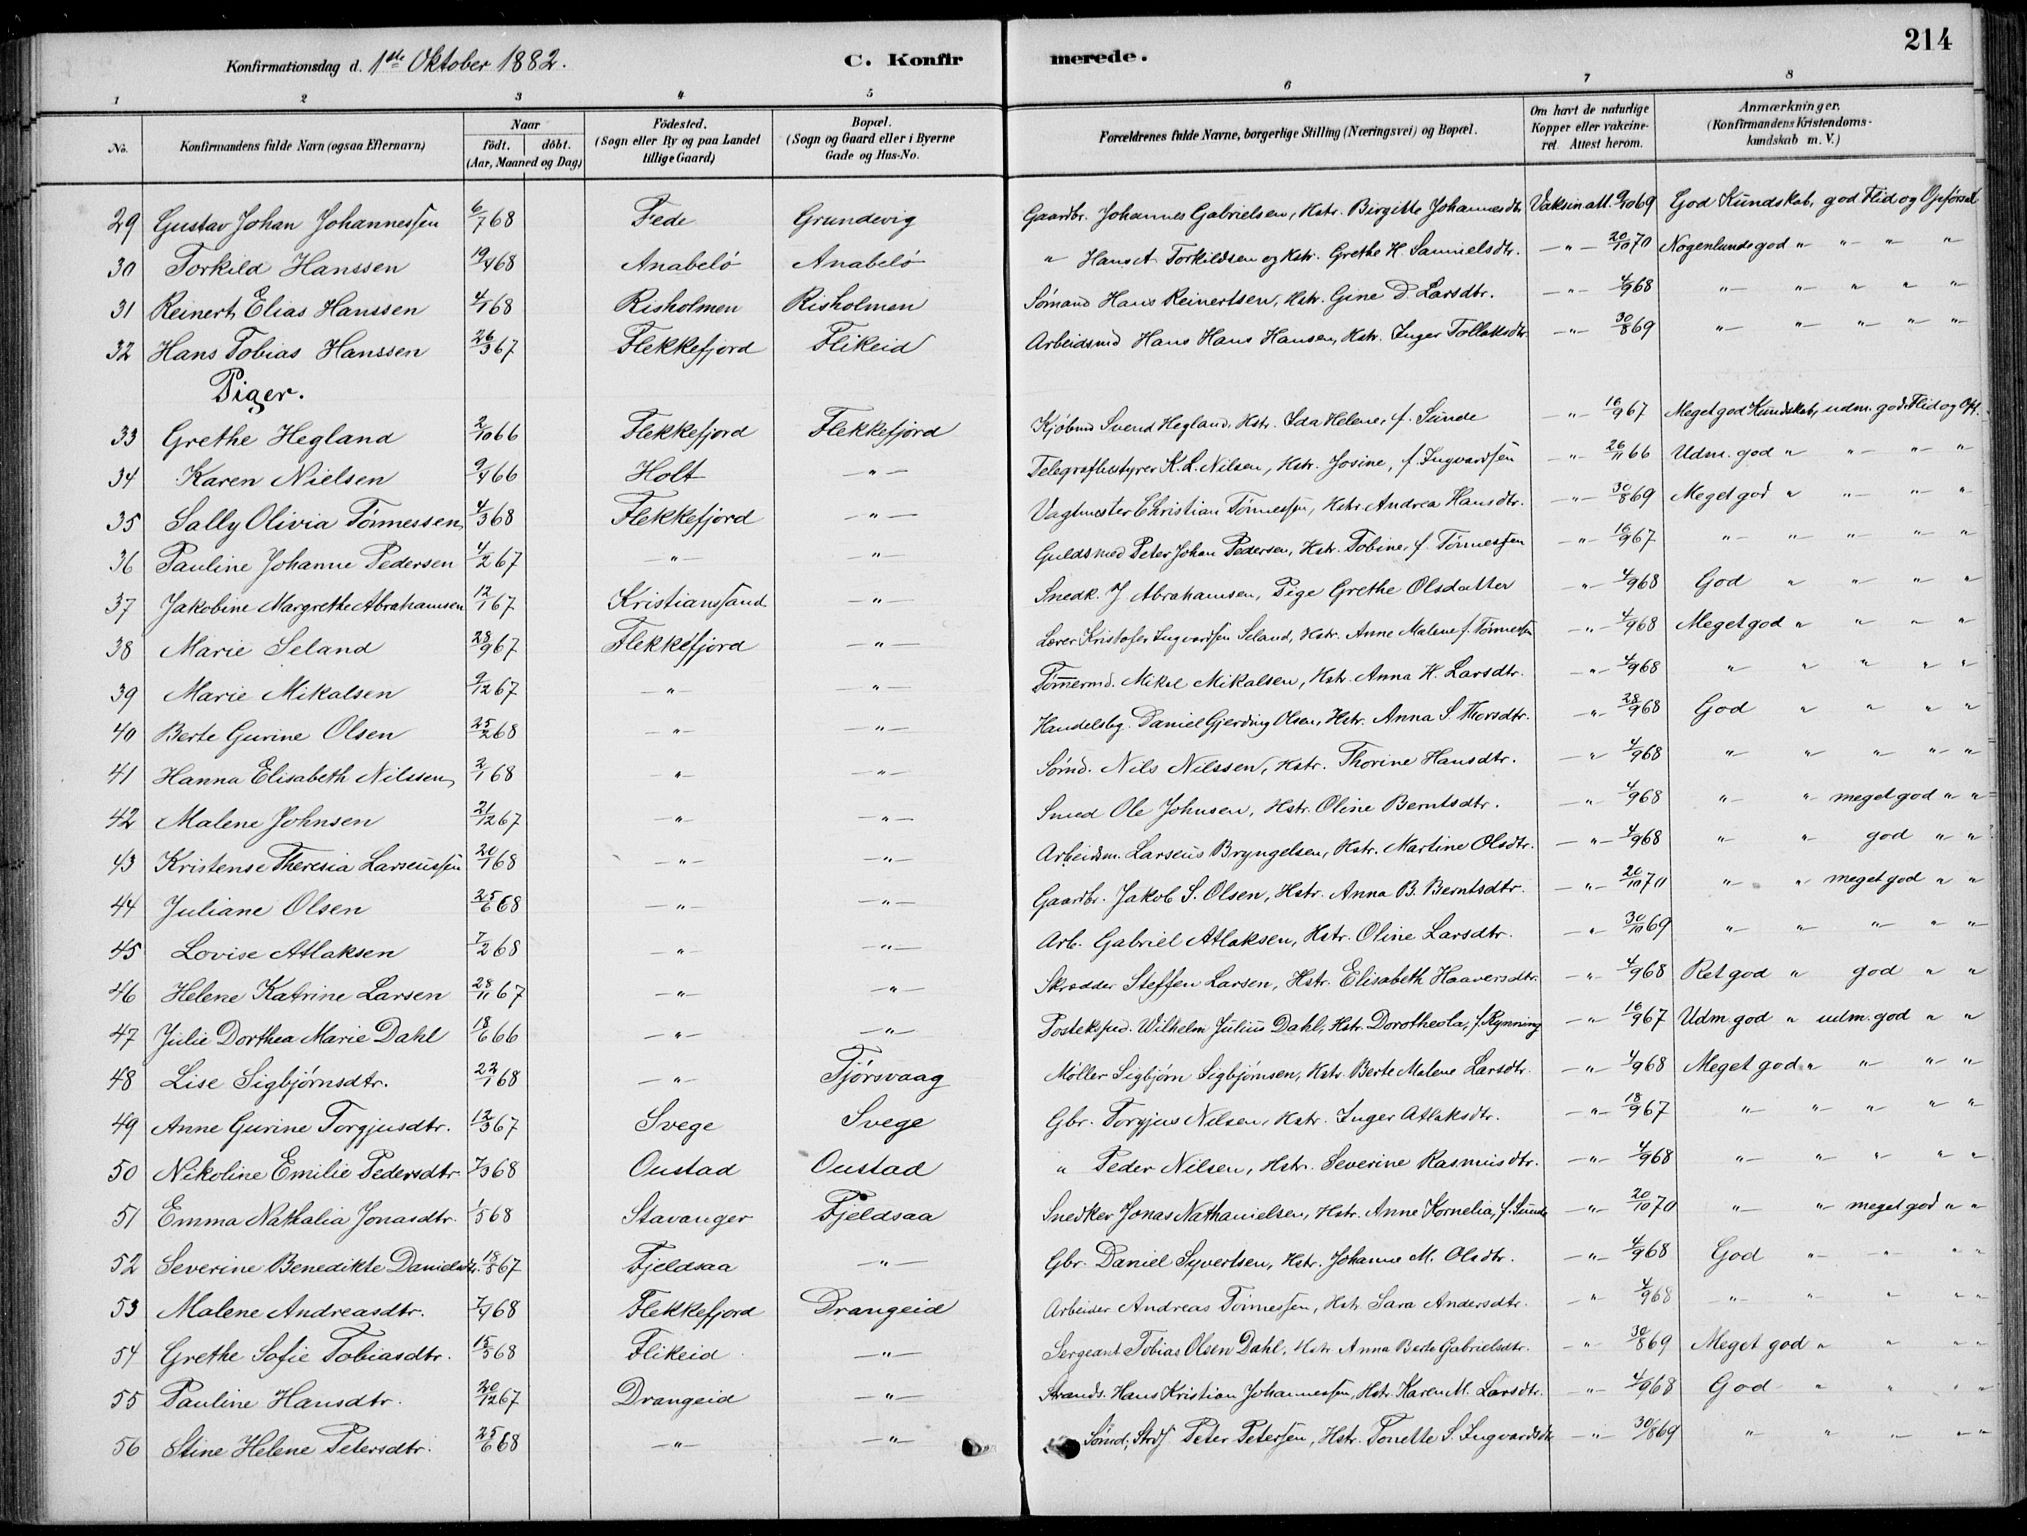 214
Konfirmationsdag d. 1ste Oktober 1882. C. Konfirmerede.
1 2 3 4 5 6 7 8
No. Konfirmandens fulde Navn (ogsaa Efternavn) Naar født. døbt. (Aar, Maaned og Dag) Fødested. (Sogn eller By og paa Landet tillige Gaard) Bopæl. (Sogn og Gaard eller i Byerne Gade og Hus-No. Forældrenes fulde Navne, borgerlige Stilling (Næringsvei) og Bopæl. Om havt de naturlige Kopper eller vakcineret. Attest herom. Anmærkninger. (Konfirmandens Kristendomskundskab m. V.)
29 Gustav Johan Johannessen 6/7 68 Fede Grundevig Gaardbr. Johannes Gabrielsen, Hstr. Birgitte Johannesdtr Vaksin att. 9/10 69 God Kundskab, god Flid og Opførsel
30 Torkild Hanssen 19/4 68 Anabelø Anabelø " Hans A Torkildsen og Hstr. Grethe H. Samuelsdtr. — " — 20/10 70 Nogenlunde god " " " "
31 Reinert Elias Hanssen 4/1 68 Risholmen Risholmen Sømand Hans Reinertsen, Hstr. Gine D. Larsdtr. — " — 4/9 68 " " " " "
32 Hans Tobias Hanssen 26/3 67 Flekkefjord Flikeid Arbeidsmd Hans Hans Hansen, Hstr. Inger Tollaksdtr — " — 30/8 69 " " " " "
Piger.
33 Grethe Hegland 2/10 66 Flekkefjord Flekkefjord Kjøbmd Svend Hegland, Hstr. Ida Helene, f. Sunde — " — 16/9 67 Meget god Kundskab, udm. god Flid og Opf.
34 Karen Nielsen 9/4 66 Holt — " — Telegrafbestyrer K. L. Nilsen, Hstr. Josine, f. Ingvardsen — " — 26/11 66 Udm. god " " " "
35 Sally Olivia Tønnessen 4/3 68 Flekkefjord — " — Vagtmester Christian Tønnessen, Hstr. Andrea Hansdtr. — " — 30/8 69 Meget god " " " "
36 Pauline Johanne Pedersen 4/2 67 — " — — " — Guldsmed Peter Johan Pedersen, Hstr. Tobine, f. Tønnessen — " — 16/9 67 " " " " "
37 Jakobine Margrethe Abrahamsen 12/1 67 Kristianssand — " — Snedk. J Abrahamsen, Pige Grethe Olsdatter " — 4/9 68 God " " " "
38 Marie Seland 28/9 67 Flekkefjord — " — Lærer Kristofer Ingvardsen Seland, Hstr. Anne Malene f. Tønnessen — " — 4/9 68 Meget god " " " "
39 Marie Mikalsen 9/12 67 — " — — " — Tømmermd. Mikal Mikalsen, Hstr. Anna K. Larsdtr. — " — 4/9 68 " " " " "
40 Berte Gurine Olsen 25/2 68 — " — — " — Handelsbg. Daniel Gjerding Olsen, Hstr. Anna S. Thorsdtr. — " — 28/9 68 God " " " "
41 Hanna Elisabeth Nilssen 2/1 68 — " — — " — Sømd. Nils Nilssen, Hstr. Thorine Hansdtr. — " — 4/9 68 " " " " "
42 Malene Johnsen 21/12 67 — " — — " — Smed Ole Johnsen, Hstr. Oline Berntsdtr. — " — 4/9 68 " " meget god " "
43 Kristense Theresia Larseussen 20/1 68 — " — — " — Arbeidsm. Larseus Bryngelsen, Hstr. Martine Olsdtr. — " — 4/9 68 " " god " "
44 Juliane Olsen 25/6 68 — " — — " — Gaardbr. Jakob S. Olsen, Hstr. Anna B. Berntsdtr. — " — 20/10 70 " " meget god " "
45 Lovise Atlaksen 7/2 68 — " — — " — Arb. Gabriel Atlaksen, Hstr. Oline Larsdtr. — " — 30/10 69 " " " " "
46 Helene Katrine Larsen 28/11 67 — " — — " — Skrædder Steffen Larsen, Hstr. Elisabeth Haaversdtr. — " — 4/9 68 Ret god " god " "
47 Julie Dorthea Marie Dahl 18/6 66 — " — — " — Posteksped. Wilhelm Julius Dahl, Hstr. Dorotheola, f. Rynning — " — 16/9 67 Udm. god " udm. god " "
48 Lise Sigbjørnsdtr. 22/1 68 — " — Tjørsvaag Møller Sigbjørn Sigbjørnsen, Hstr. Berte Malene Larsdtr. — " — 4/9 68 Meget god " " " "
49 Anne Gurine Torgjusdtr. 12/3 67 Svege Svege Gbr. Torgjus Nilsen, Hstr. Inger Atlaksdtr. — " — 18/9 67 " " " " "
50 Nikoline Emilie Pedersdtr. 7/3 68 Oustad Oustad " Peder Nilsen, Hstr. Severine Rasmusdtr. — " — 4/9 68 " " " " "
51 Emma Nathalia Jonasdtr. 1/5 68 Stavanger Fjeldsaa Snedker Jonas Nathanielsen, Hstr. Anne Kornelia, f. Sunde — " — 20/10 70 " " meget god " "
52 Severine Benedikte Danielsdtr. 18/5 67 Fjeldsaa — " — Gbr. Daniel Syvertsen, Hstr. Johanne M. Olsdtr. — " — 4/9 68 God " " " "
53 Malene Andreasdtr. 7/4 68 Flekkefjord Drangeid Arbeider Andreas Tønnessen, Hstr. Sara Andersdtr. — " 4/9 68 " " " " "
54 Grethe Sofie Tobiasdtr. 15/5 68 Flikeid — " — Sergeant Tobias Olsen Dahl, Hstr Anna Berte Gabrielsdtr. — " 30/8 69 Meget god " " " "
55 Pauline Hansdtr. 20/12 67 Drangeid — " — Strands. Hans Kristian Johannessen, Hstr. Karen M. Larsdtr. — " — 4/9 68 God " " " "
56 Stine Helene Petersdtr. 25/6 68 — " — — " — Sømd, Strds Peter Petersen, Hstr. Tonette S. Ingvardsdtr — " — 30/8 69 " " " " "